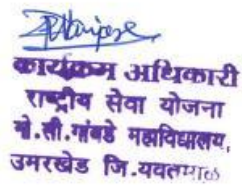 कार्यक्रम अधिकारी
राष्ट्रीय सेवा योजना
गो.सी.गांवडे महाविद्यालय,
उमरखेड जि.यवतमाळ